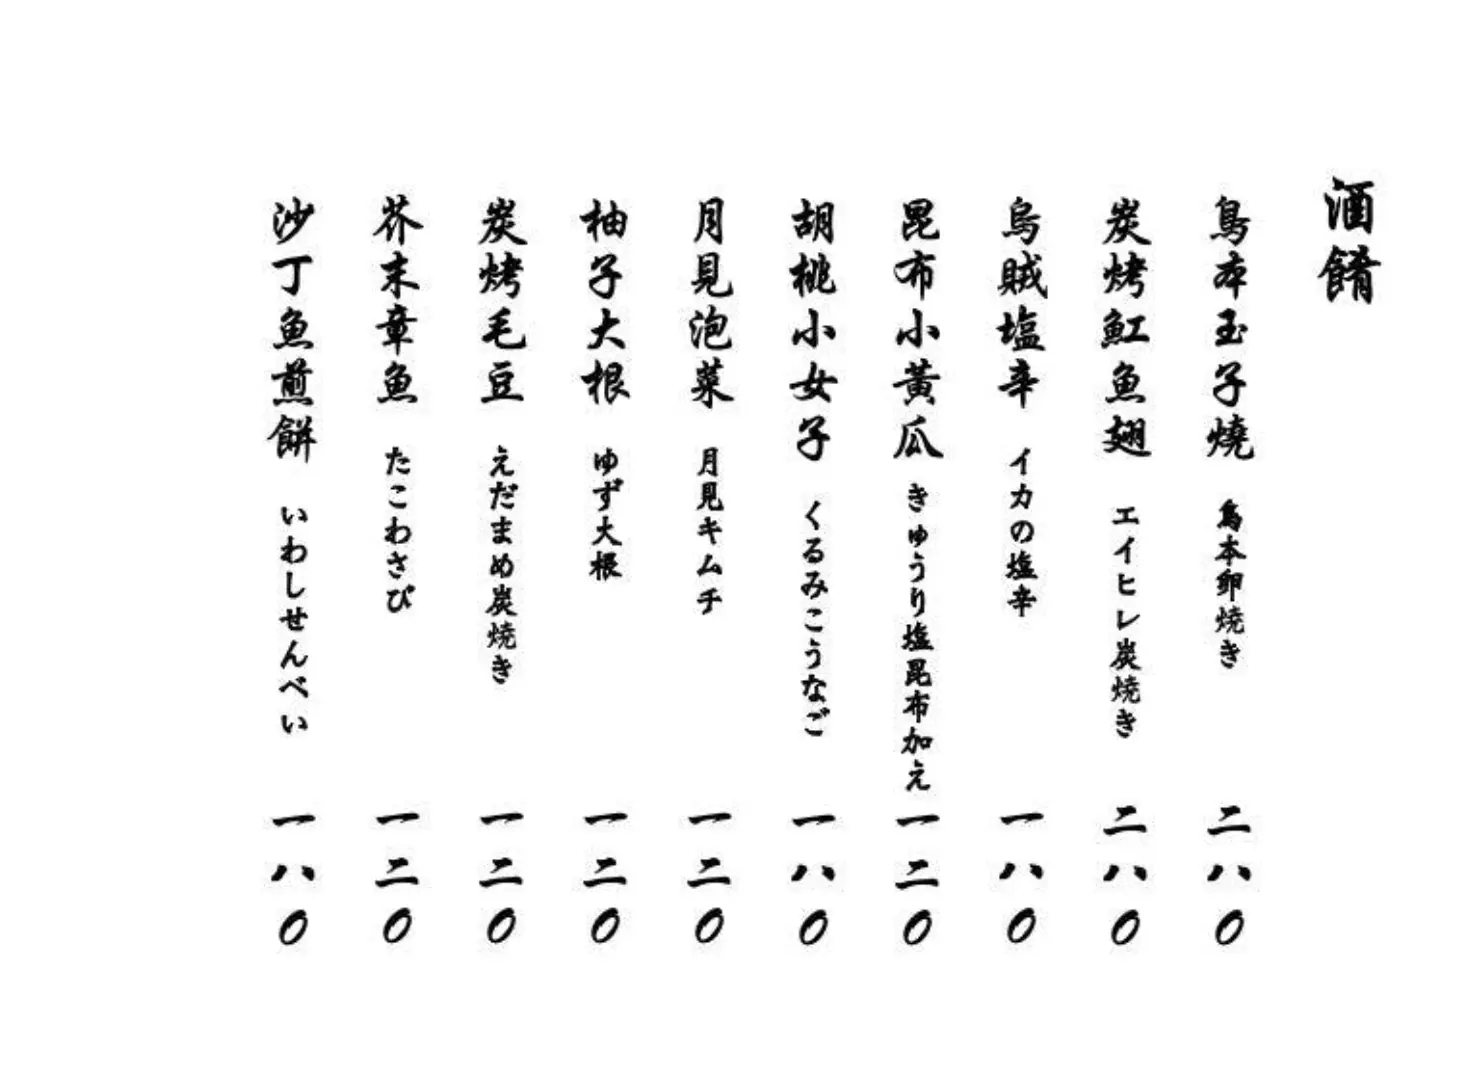 酒餚
鳥本玉子燒 鳥本卵焼き 二八0
炭烤魟魚翅 エイヒレ炭焼き 二八0
烏賊塩辛 イカの塩辛 一八0
昆布小黃瓜 きゅうり塩昆布加え 一二0
胡桃小女子 くるみこうなご 一八0
月見泡菜 月見キムチ 一二0
柚子大根 ゆず大根 一二0
炭烤毛豆 えだまめ炭焼き 一二0
芥末章魚 たこわさび 一二0
沙丁魚煎餅 いわしせんべい 一八0